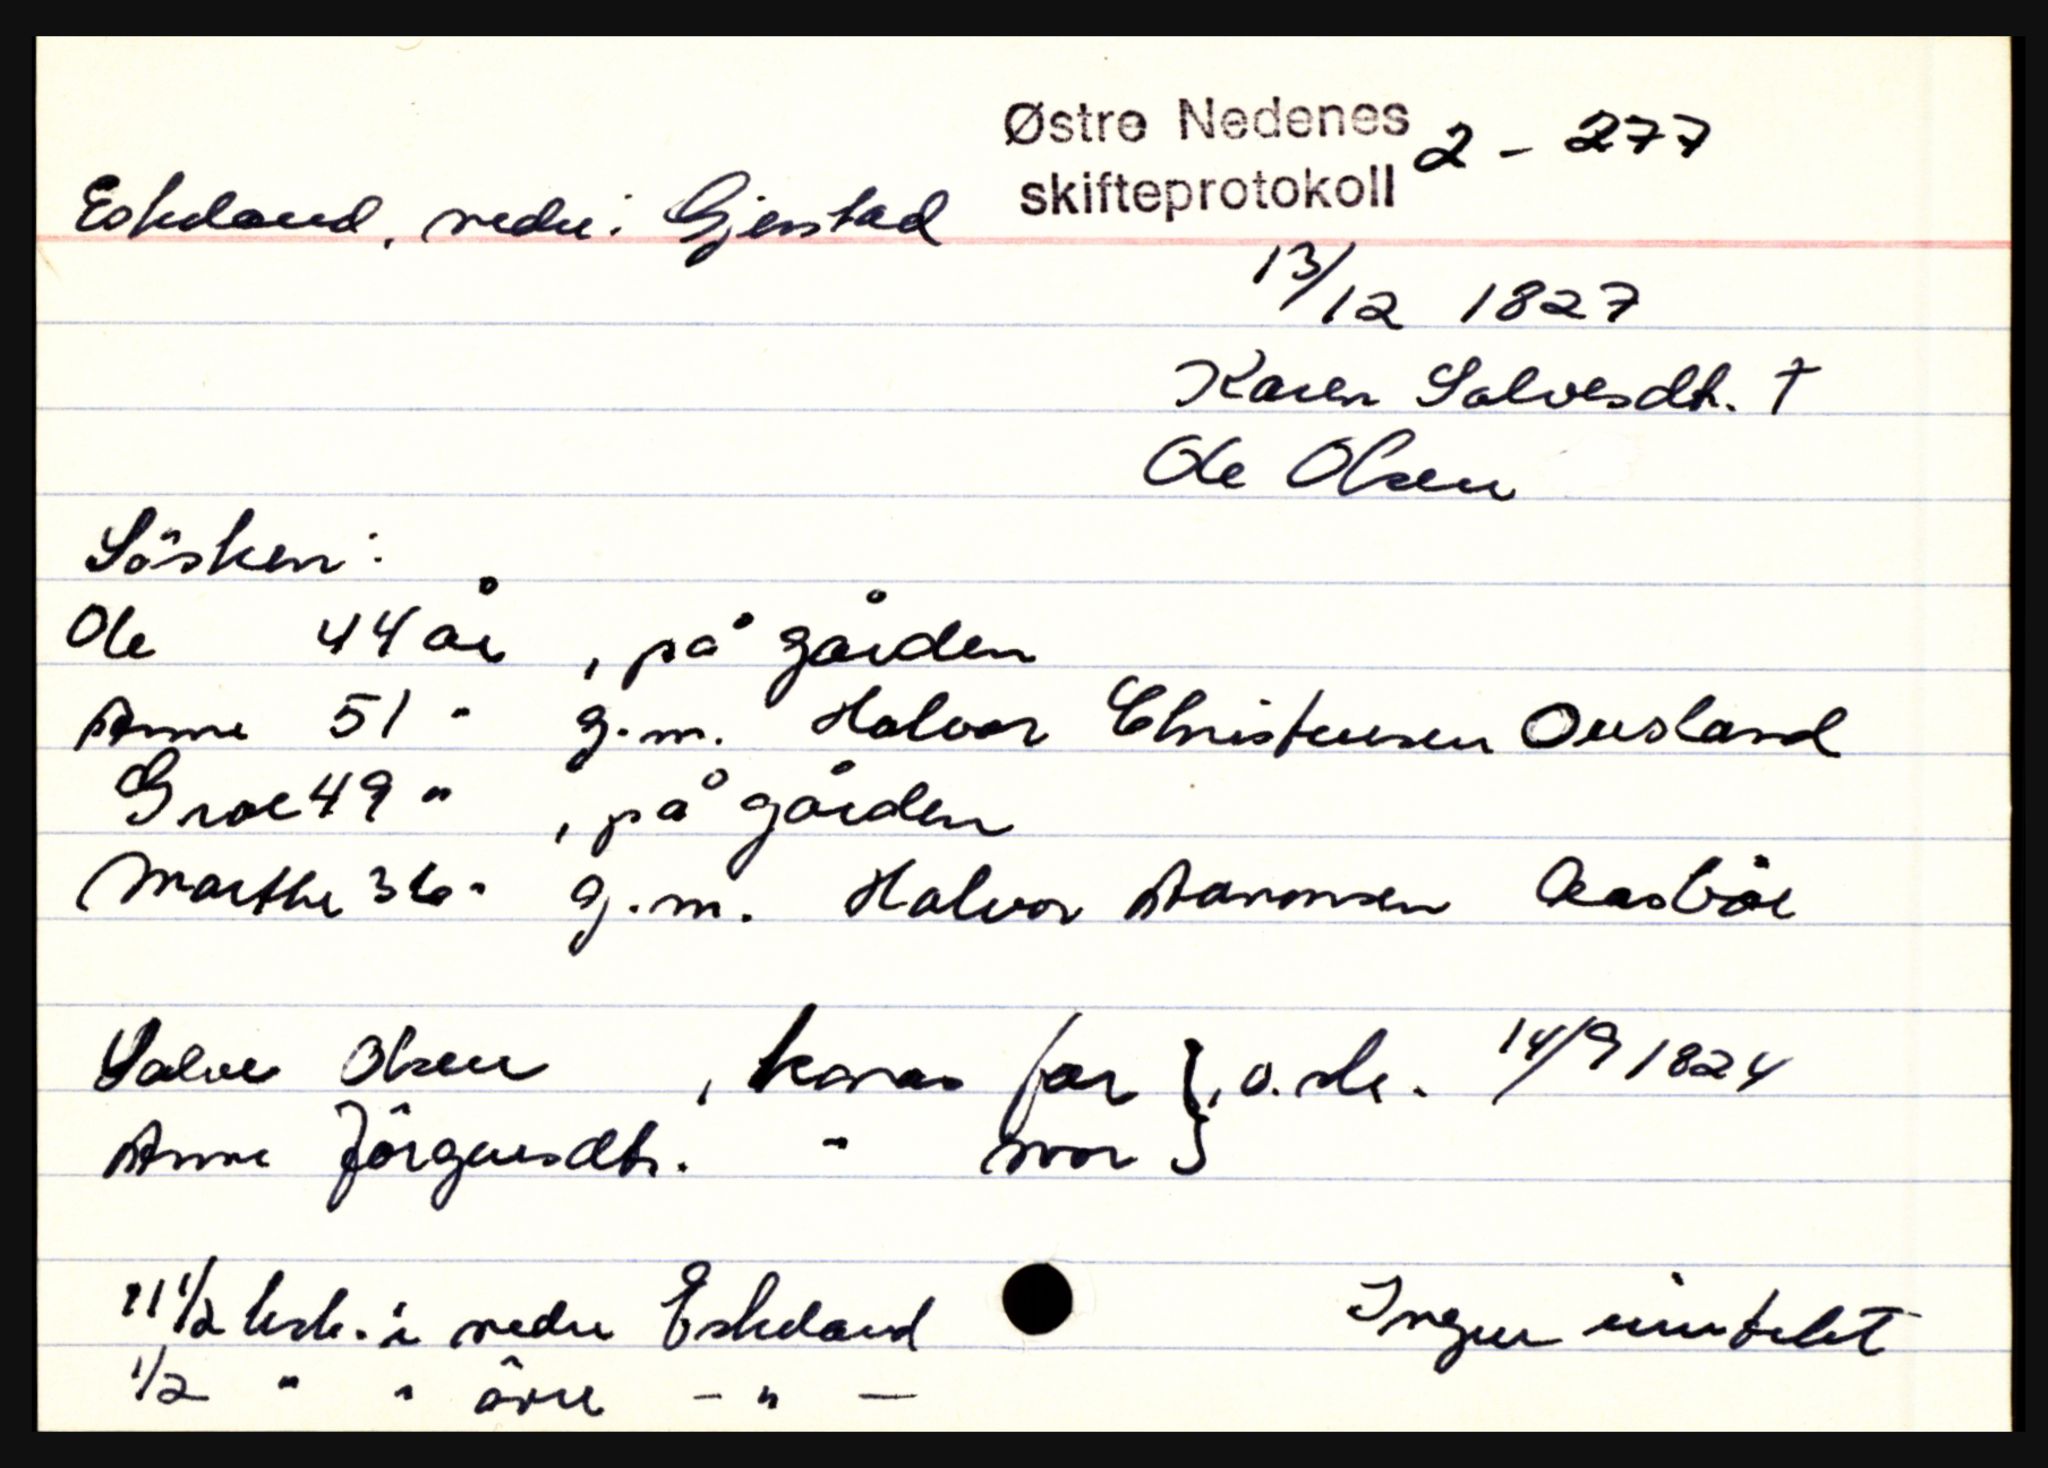 Østre Nedenes 2 - 277
skifteprotokoll
Eskeland, nedre i Gjerstad
13/12 1827
Karen Salvesdtr. †
Ole Olsen
Sösken:
Ole 44 år , på gården
Anne 51 " g.m. Halvor Christensen Ousland
Groe 49 " , på gården
Marthe 36 " g.m. Halvor Aanonsen Aasböe
Salve Olsen , konas far }, o. sk. 14/9 1824
Anne Jörgensdtr. " mor }
11 1/2 ksk. i nedre Eskeland
Ingen inntekt
1/2 " " övre - " -